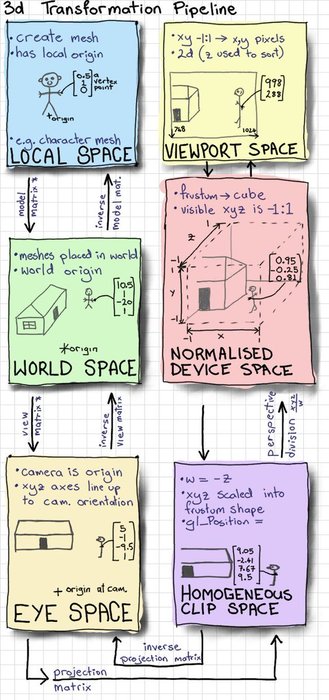 3d Transformation Pipeline
• create mesh
• has local origin
[0.5
1
0]
a
vertex
point
+origin
• e.g. character mesh
LOCAL SPACE
model
matrix *
inverse
model mat.
• meshes placed in world
• world origin
[10.5
1
-20
1]
*origin
WORLD SPACE
view
matrix *
inverse
view matrix
• Camera is origin
• xyz axes line up
to cam. orientation
[5
-1
-9.5]
+ origin at cam.
EYE SPACE
projection
matrix
inverse
projection matrix
• w = -z
• xyz scaled into
frustum shape
• gl_Position =
[9.05
-2.41
7.67
9.5]
HOMOGENEOUS
CLIP SPACE
perspective
division xyz
w
• frustum → cube
• visible xyz is -1:1
1
z
-1
1
y
-1
-1
x
1
[0.95
-0.25
0.81]
NORMALISED
DEVICE SPACE
• xy -1:1 → x,y pixels
• 2d (z used to sort)
[998
288]
768
1024
VIEWPORT SPACE